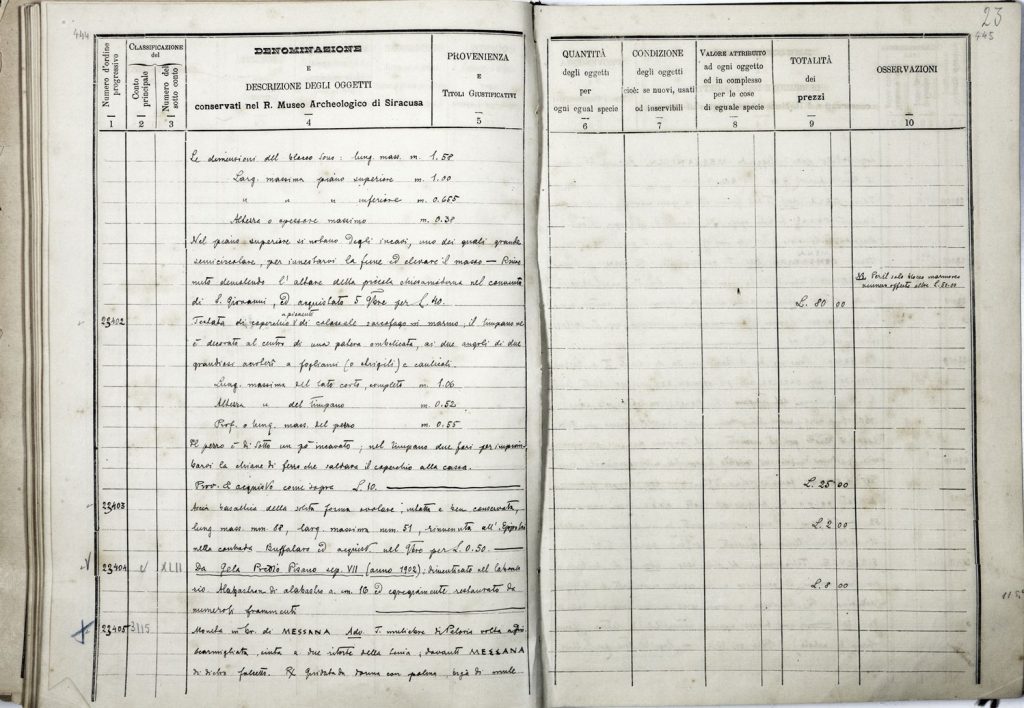 444
23
445
Numero d'ordine progressivo
CLASSIFICAZIONE
del
Conto principale
Numero del sotto conto
DENOMINAZIONE
E
DESCRIZIONE DEGLI OGGETTI
conservati nel R. Museo Archeologico di Siracusa
PROVENIENZA
E
TITOLI GIUSTIFICATIVI
QUANTITÀ
degli oggetti
per
ogni egual specie
CONDIZIONE
degli oggetti
cioè: se nuovi, usati
od inservibili
VALORE ATTRIBUITO
ad ogni oggetto
ed in complesso
per le cose
di eguale specie
TOTALITÀ
dei
prezzi
OSSERVAZIONI
1 2 3 4 5 6 7 8 9 10
Le dimensioni del blocco sono: lung. mass. m. 1.58
Larg. massima piano superiore m. 1.00
" " " inferiore m. 0.655
Altezza o spessore massimo m. 0.38
Nel piano superiore si notano degli incavi, uno dei quali grande
semicircolare, per innestarvi la fune ed elevare il masso — Rinve-
nuto demolendo l'altare della piccola chiesa moderna nel convento
di S. Giovanni, ed acquistato 5 9bre per L. 40.
L. 80 00
Per il solo blocco marmoreo
23402
Testata di coperchio a pioventi di colossale sarcofago in marmo; il timpano
è decorato al centro di una patera ombelicata, ai due angoli di due
grandiosi acroteri a fogliami (o strigili) e cauticoli.
Lung. massima del lato corto, completo m. 1.06
Altezza " del timpano m. 0.52
Prof. o lung. mass. del pezzo m. 0.55
Il pezzo è di sotto un pò incavato; nel timpano due fori per
le chiane di ferro che saldava il coperchio alla cassa.
Prov. & acquisto come sopra L. 10.
L. 25 00
23403
della solita forma ovolare, intatta e ben conservata,
lung. mass. mm 68, larg. massima mm. 51, rinvenuta all'Epipole
nella contrada Buffalaro ed acquist. nel 9bre per L. 0.50.
L. 2 00
23404 XLII
Da Gela Predio Pisano sep. VII (anno 1902); dimenticato nel laborato-
rio. Alabastron di alabastro a. cm. 16 ed egregiamente restaurato da
numerosi frammenti
L. 8 00
23405 3115
Moneta in br. di MESSANA Ado. T. muliebre di Peloria volta a
scarmigliata, cinta a due ritorte della tenia; davanti MESSANA
di dietro falcetto. R/ guidata da donna con palma, biga di mule